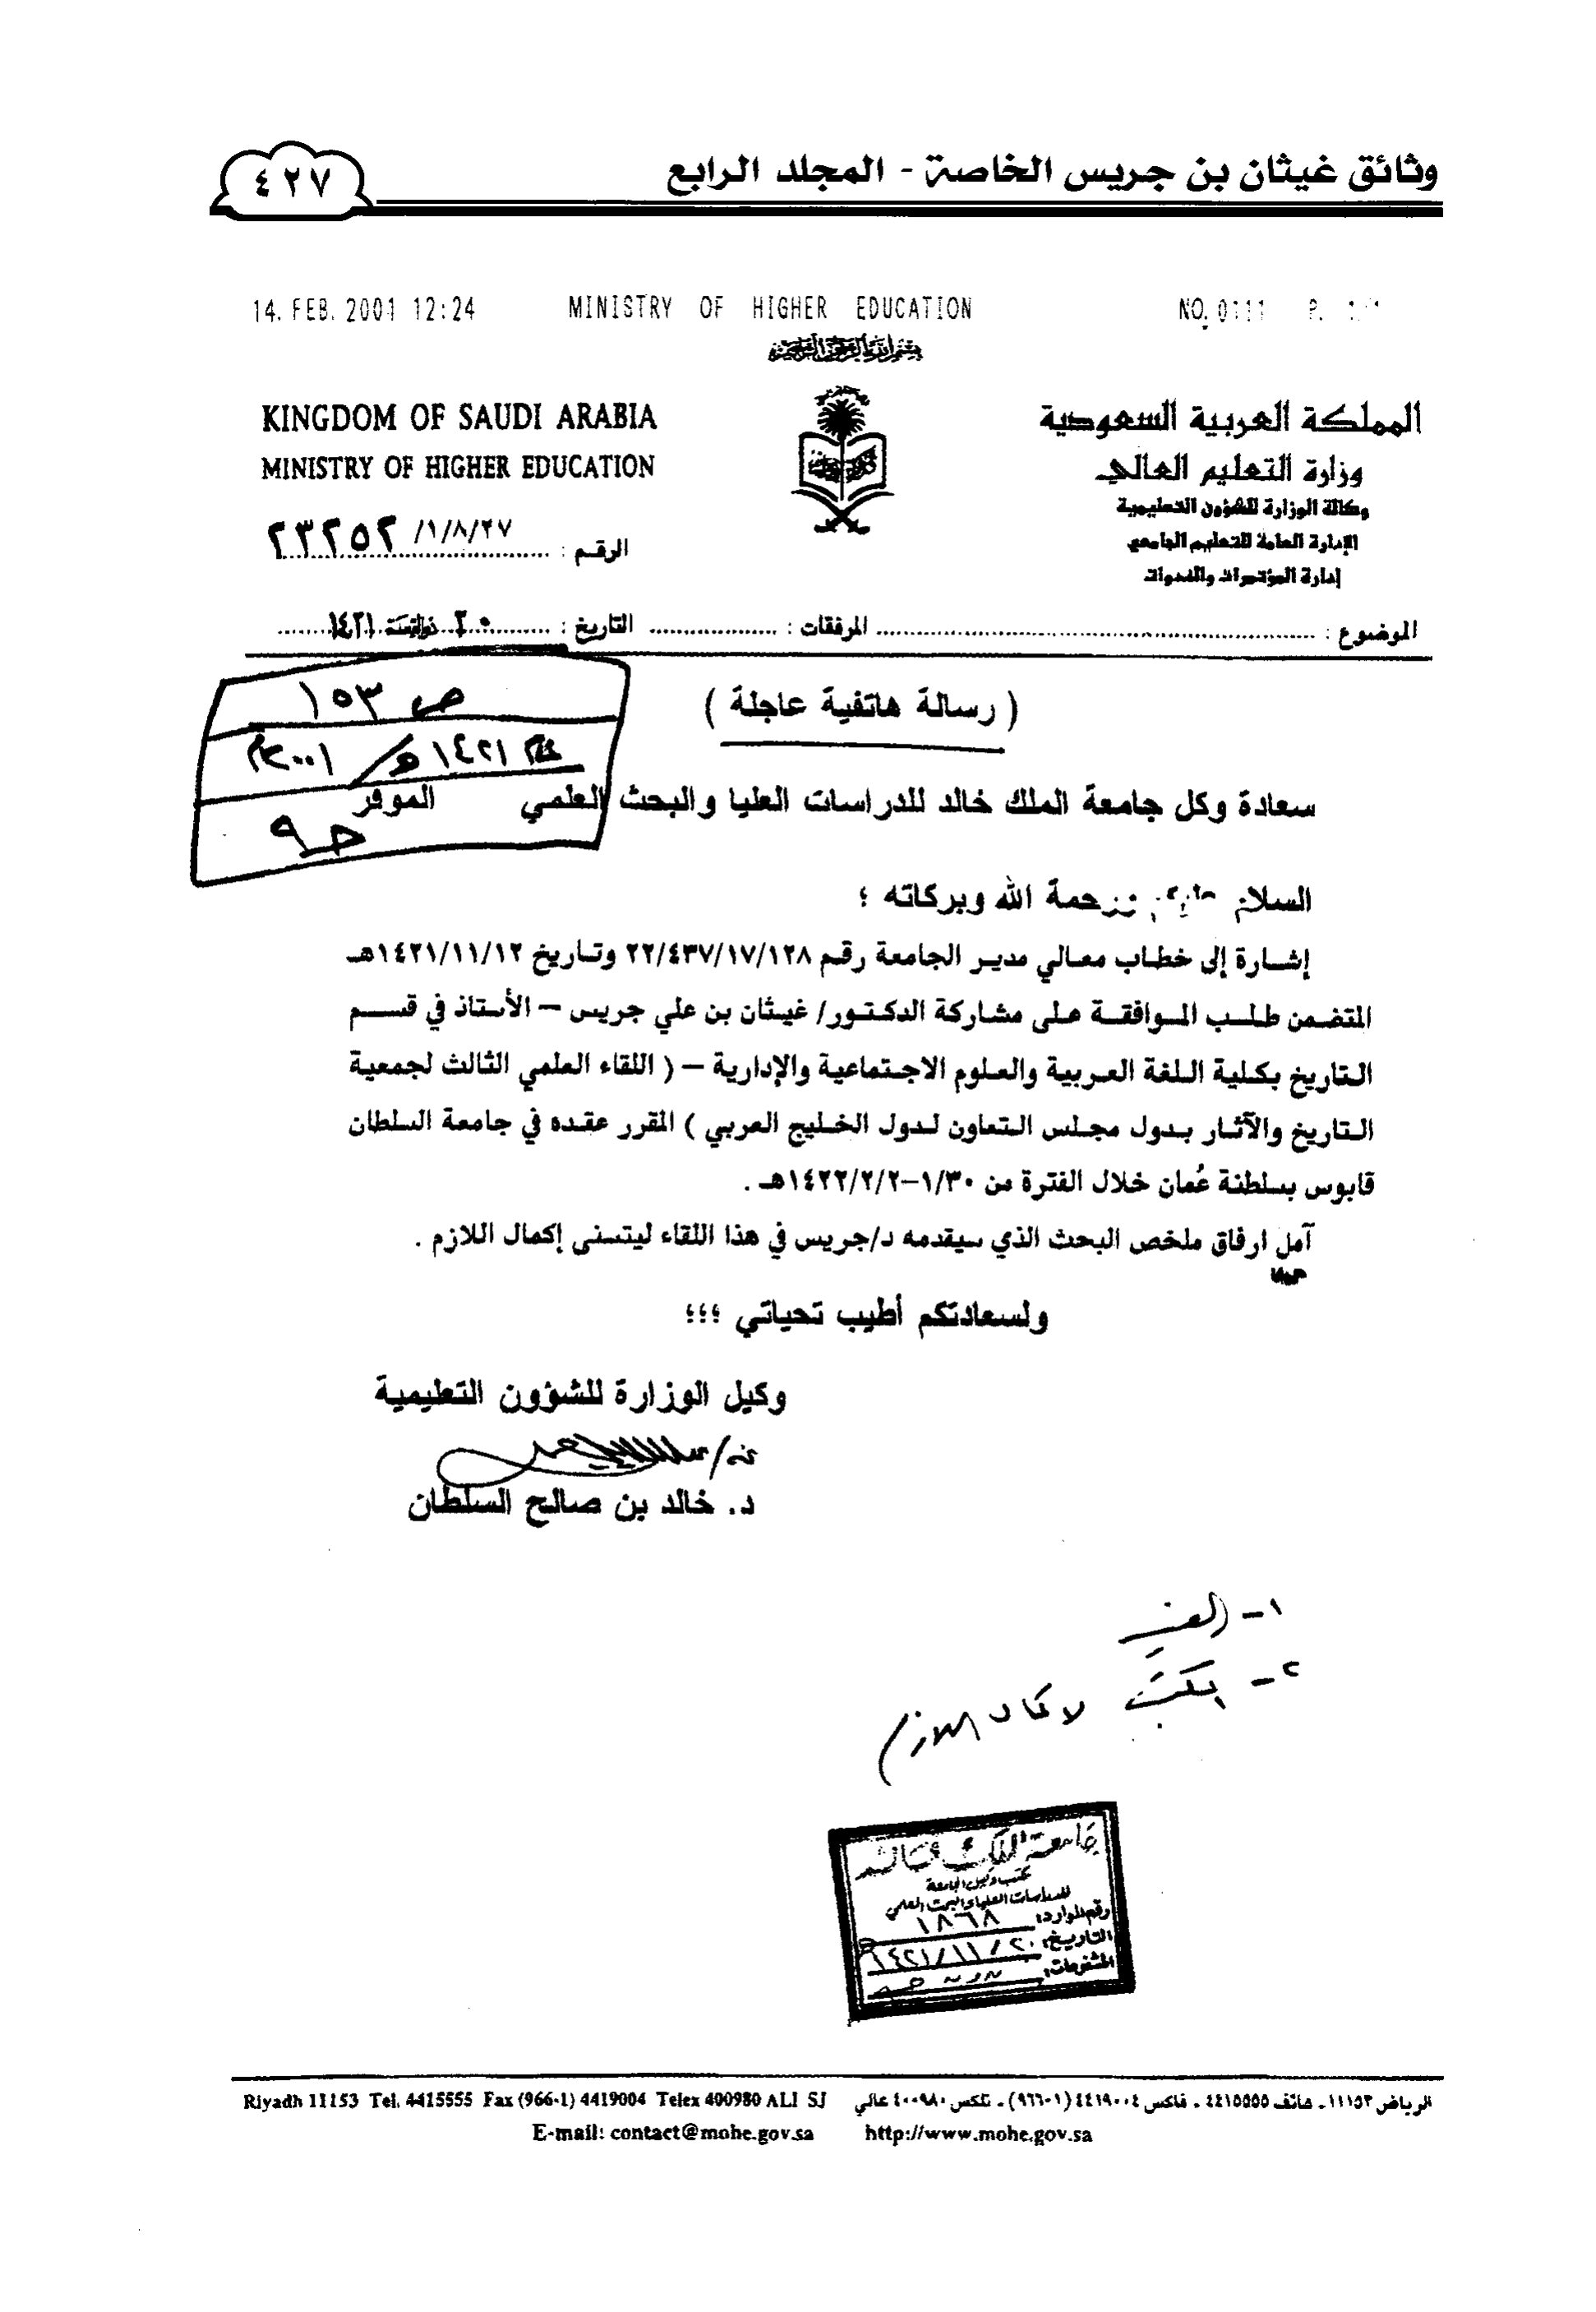 وثائق غيثان بن جريس الخاصة - المجلد الرابع
٤٢٧
14. FEB. 2001 12:24 MINISTRY OF HIGHER EDUCATION NO. 0111 P.
بسم الله الرحمن الرحيم
KINGDOM OF SAUDI ARABIA
MINISTRY OF HIGHER EDUCATION
المملكة العربية السعودية
وزارة التعليم العالي
وكالة الوزارة للشؤون التعليمية
الإدارة العامة للتعليم الجامعي
إدارة المؤتمرات والندوات
الرقم : ٢٣٢٥٢ /١/٨/٢٧
الموضوع : المرفقات : التاريخ : ٢٠ ذوالقعدة ١٤٢١
ص ١٥٣
١٤٢١هـ / ٢٠٠١م
ح٩
( رسالة هاتفية عاجلة )
سعادة وكل جامعة الملك خالد للدراسات العليا والبحث العلمي الموقر
السلام عليكم ورحمة الله وبركاته ؛
إشارة إلى خطاب معالي مدير الجامعة رقم ٢٢/٤٣٧/١٧/١٢٨ وتاريخ ١٤٢١/١١/١٢هـ
المتضمن طلب الموافقة على مشاركة الدكتور/ غيثان بن علي جريس – الأستاذ في قسم
التاريخ بكلية اللغة العربية والعلوم الاجتماعية والإدارية – ( اللقاء العلمي الثالث لجمعية
التاريخ والآثار بدول مجلس التعاون لدول الخليج العربي ) المقرر عقده في جامعة السلطان
قابوس بسلطنة عُمان خلال الفترة من ١/٣٠–١٤٢٢/٢/٢هـ .
آمل ارفاق ملخص البحث الذي سيقدمه د/جريس في هذا اللقاء ليتسنى إكمال اللازم .
ولسعادتكم أطيب تحياتي ؛؛؛
وكيل الوزارة للشؤون التعليمية
عنه/
د. خالد بن صالح السلطان
١-
٢- المكتب لإكمال اللازم
جامعة الملك خالد
مكتب وكيل الجامعة
للدراسات العليا والبحث العلمي
رقم الوارد: ١٨٦٨
التاريخ: ١٤٢١/١١/٢٠هـ
المشفوعات:
Riyadh 11153 Tel. 4415555 Fax (966-1) 4419004 Telex 400980 ALI SJ
الرياض ١١١٥٣ـ هاتف ٤٤١٥٥٥٥ ـ فاكس ٤٤١٩٠٠٤ (٠١-٩٦٦) ـ تلكس ٤٠٠٩٨٠ عالي
E-mail: contact@mohe.gov.sa http://www.mohe.gov.sa